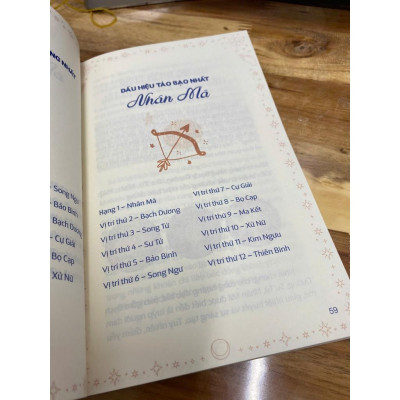 NG NHẤT
Song Ngư
Bảo Bình
Bạch Dương
– Cự Giải
– Bọ Cạp
– Xử Nữ
DẤU HIỆU TÁO BẠO NHẤT
Nhân Mã
Hạng 1 – Nhân Mã
Vị trí thứ 2 – Bạch Dương
Vị trí thứ 3 – Song Tử
Vị trí thứ 4 – Sư Tử
Vị trí thứ 5 – Bảo Bình
Vị trí thứ 6 – Song Ngư
Vị trí thứ 7 – Cự Giải
Vị trí thứ 8 – Bọ Cạp
Vị trí thứ 9 – Ma Kết
Vị trí thứ 10 – Xử Nữ
Vị trí thứ 11 – Kim Ngưu
Vị trí thứ 12 – Thiên Bình
59